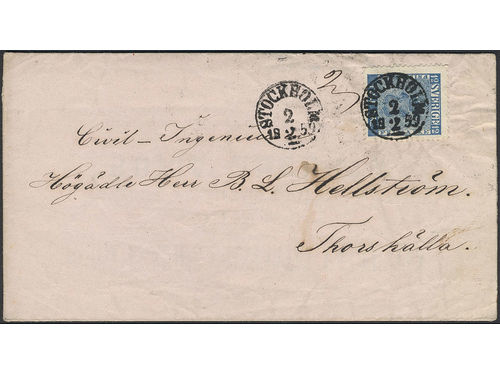 STOCKHOLM
2
2
1859
STOCKHOLM
2
2
1859
SVERIGE
Civil-Ingenieur
Högädle Herr B. L. Hellström.
Thorshälla.